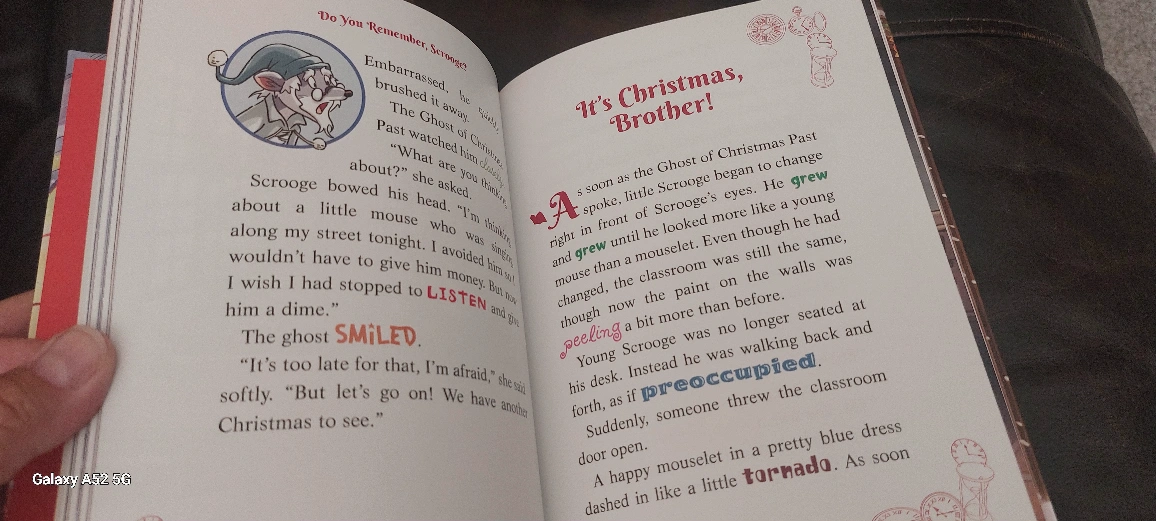 Do You Remember, Scrooge?
Embarrassed, he
brushed it away.
The Ghost of Christmas
Past watched him
"What are you thinking
about?" she asked.
Scrooge bowed his head. "I'm thinking
about a little mouse who was singing
along my street tonight. I avoided him so I
wouldn't have to give him money. But now
I wish I had stopped to LISTEN and give
him a dime."
The ghost SMiLED.
"It's too late for that, I'm afraid," she said
softly. "But let's go on! We have another
Christmas to see."
It's Christmas,
Brother!
As soon as the Ghost of Christmas Past
spoke, little Scrooge began to change
right in front of Scrooge's eyes. He grew
and grew until he looked more like a young
mouse than a mouselet. Even though he had
changed, the classroom was still the same,
though now the paint on the walls was
peeling a bit more than before.
Young Scrooge was no longer seated at
his desk. Instead he was walking back and
forth, as if preoccupied.
Suddenly, someone threw the classroom
door open.
A happy mouselet in a pretty blue dress
dashed in like a little tornado. As soon
Galaxy A52 5G